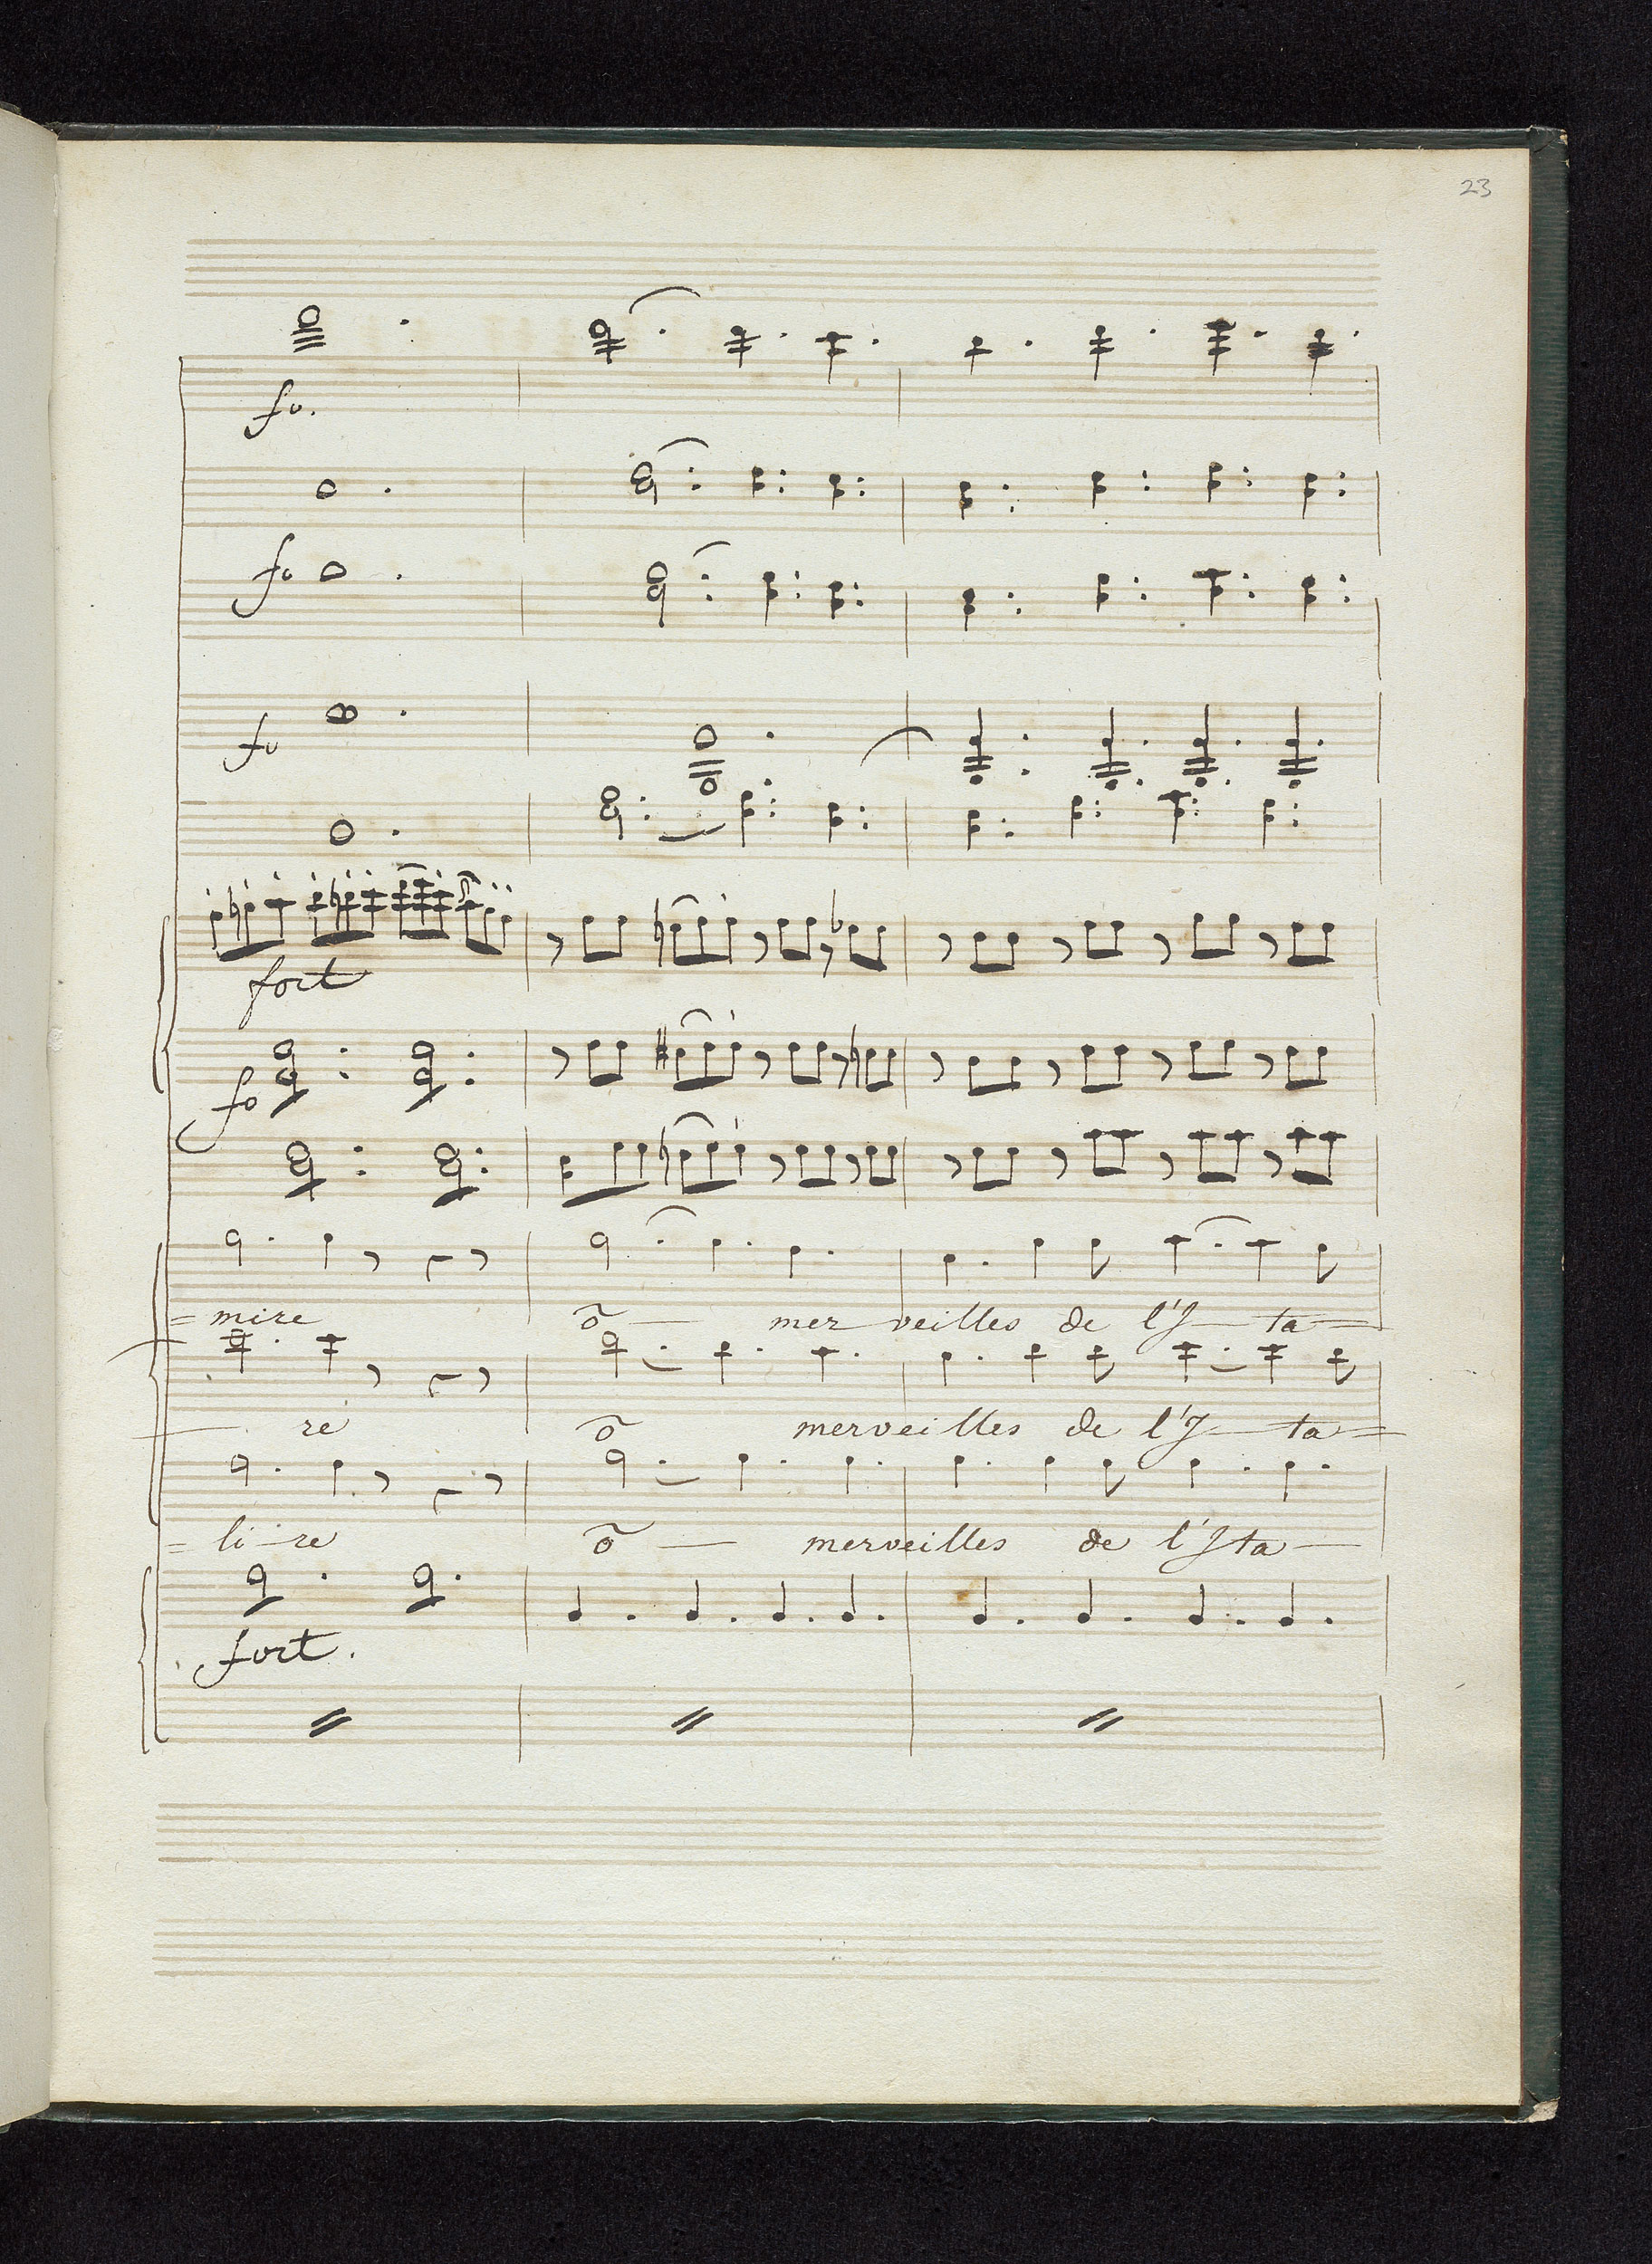 23
fo.
fo
fo
fort
fo
= mire ō — mer veilles de l'I — ta =
— re ō merveilles de l'I — ta =
= li - re ō — merveilles de l'Ita —
fort.